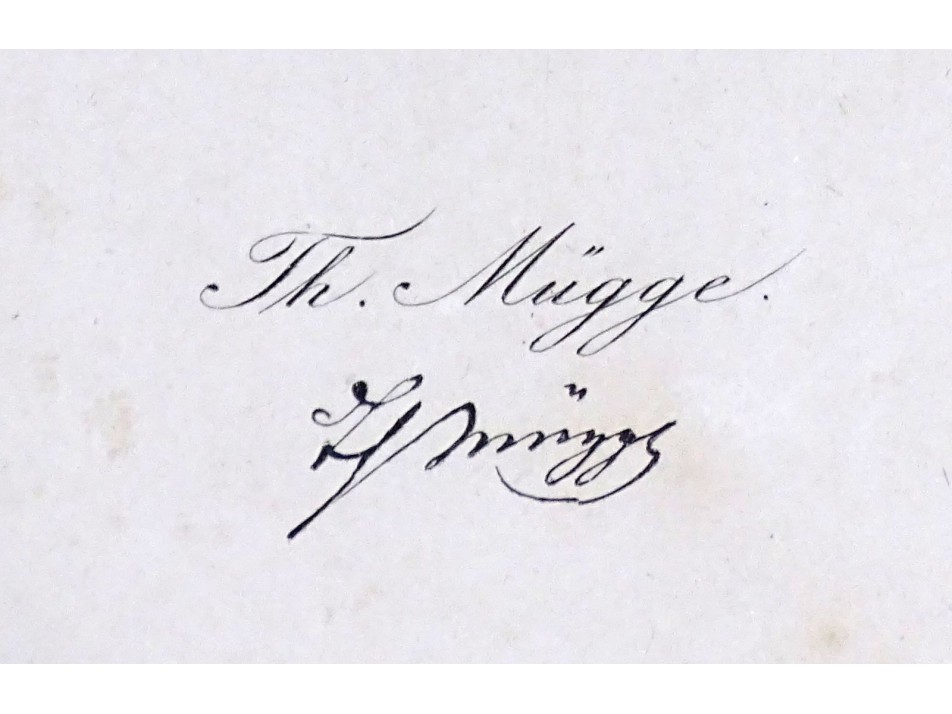 Th. Mügge.
Th Mügge